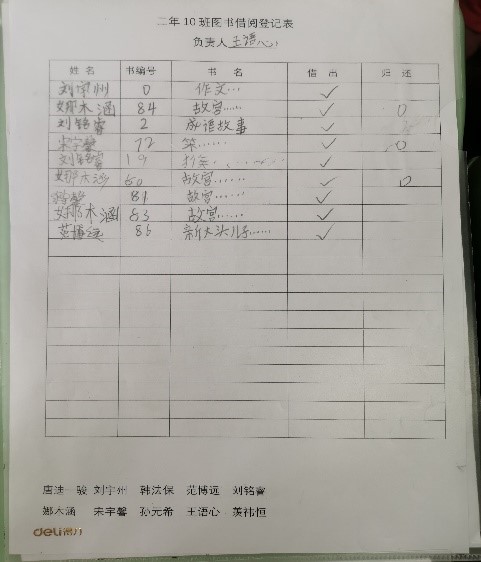 二年10班图书借阅登记表
负责人 王语心
姓名 书编号 书名 借出 归还
刘宇州 0 作文… ✓
娜木涵 84 故宫…… ✓ 0
刘铭睿 2 成语故事 ✓
宋宇馨 72 笨…… ✓ 0
刘铭睿 19 ✓
娜木涵 80 故宫…… ✓ 0
馨 81 故宫…… ✓
娜木涵 83 故宫…… ✓
范博远 86 新大头儿子…… ✓
唐迚一骏 刘宇州 韩法保 范博远 刘铭睿
娜木涵 宋宇馨 孙元希 王语心 羡祎恒
deli得力